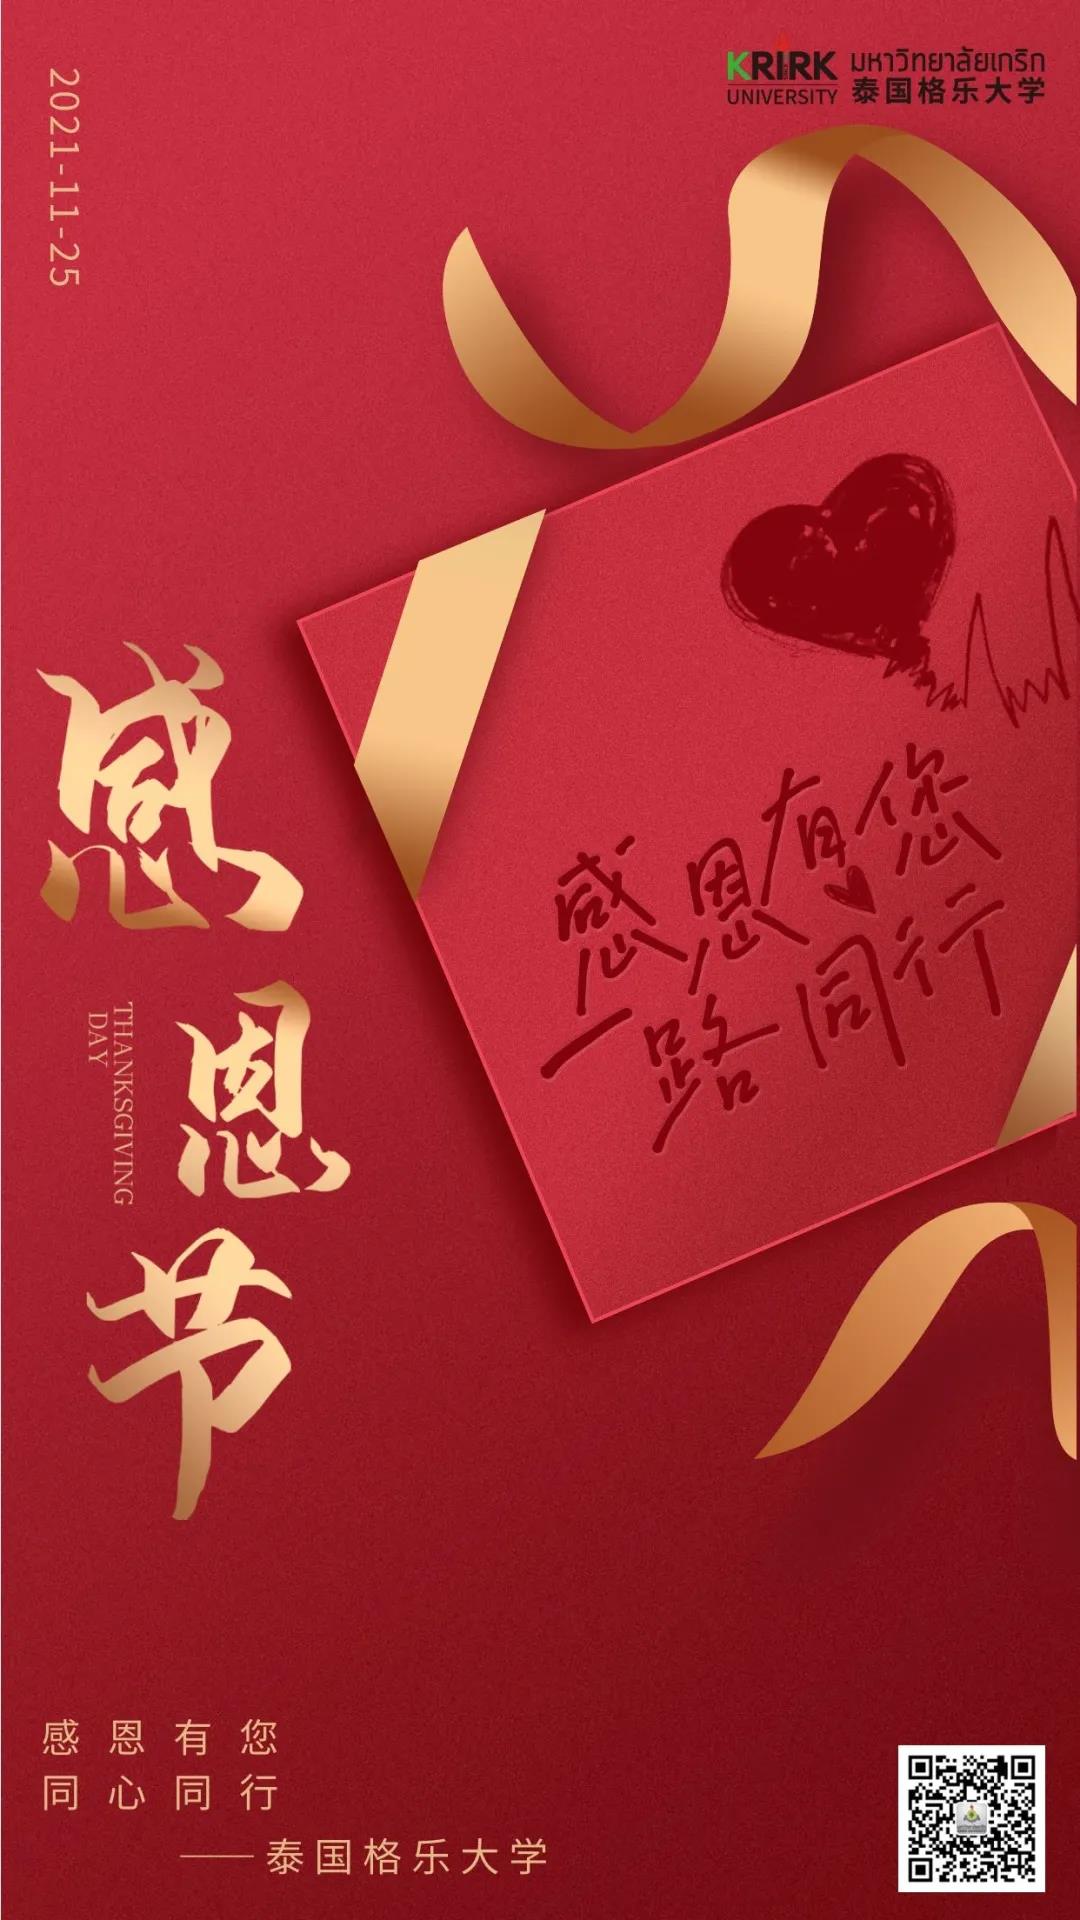 2021-11-25
KRIRK
UNIVERSITY
มหาวิทยาลัยเกริก
泰国格乐大学
感恩有您
一路同行
感恩节
THANKSGIVING
DAY
感恩有您
同心同行
——泰国格乐大学